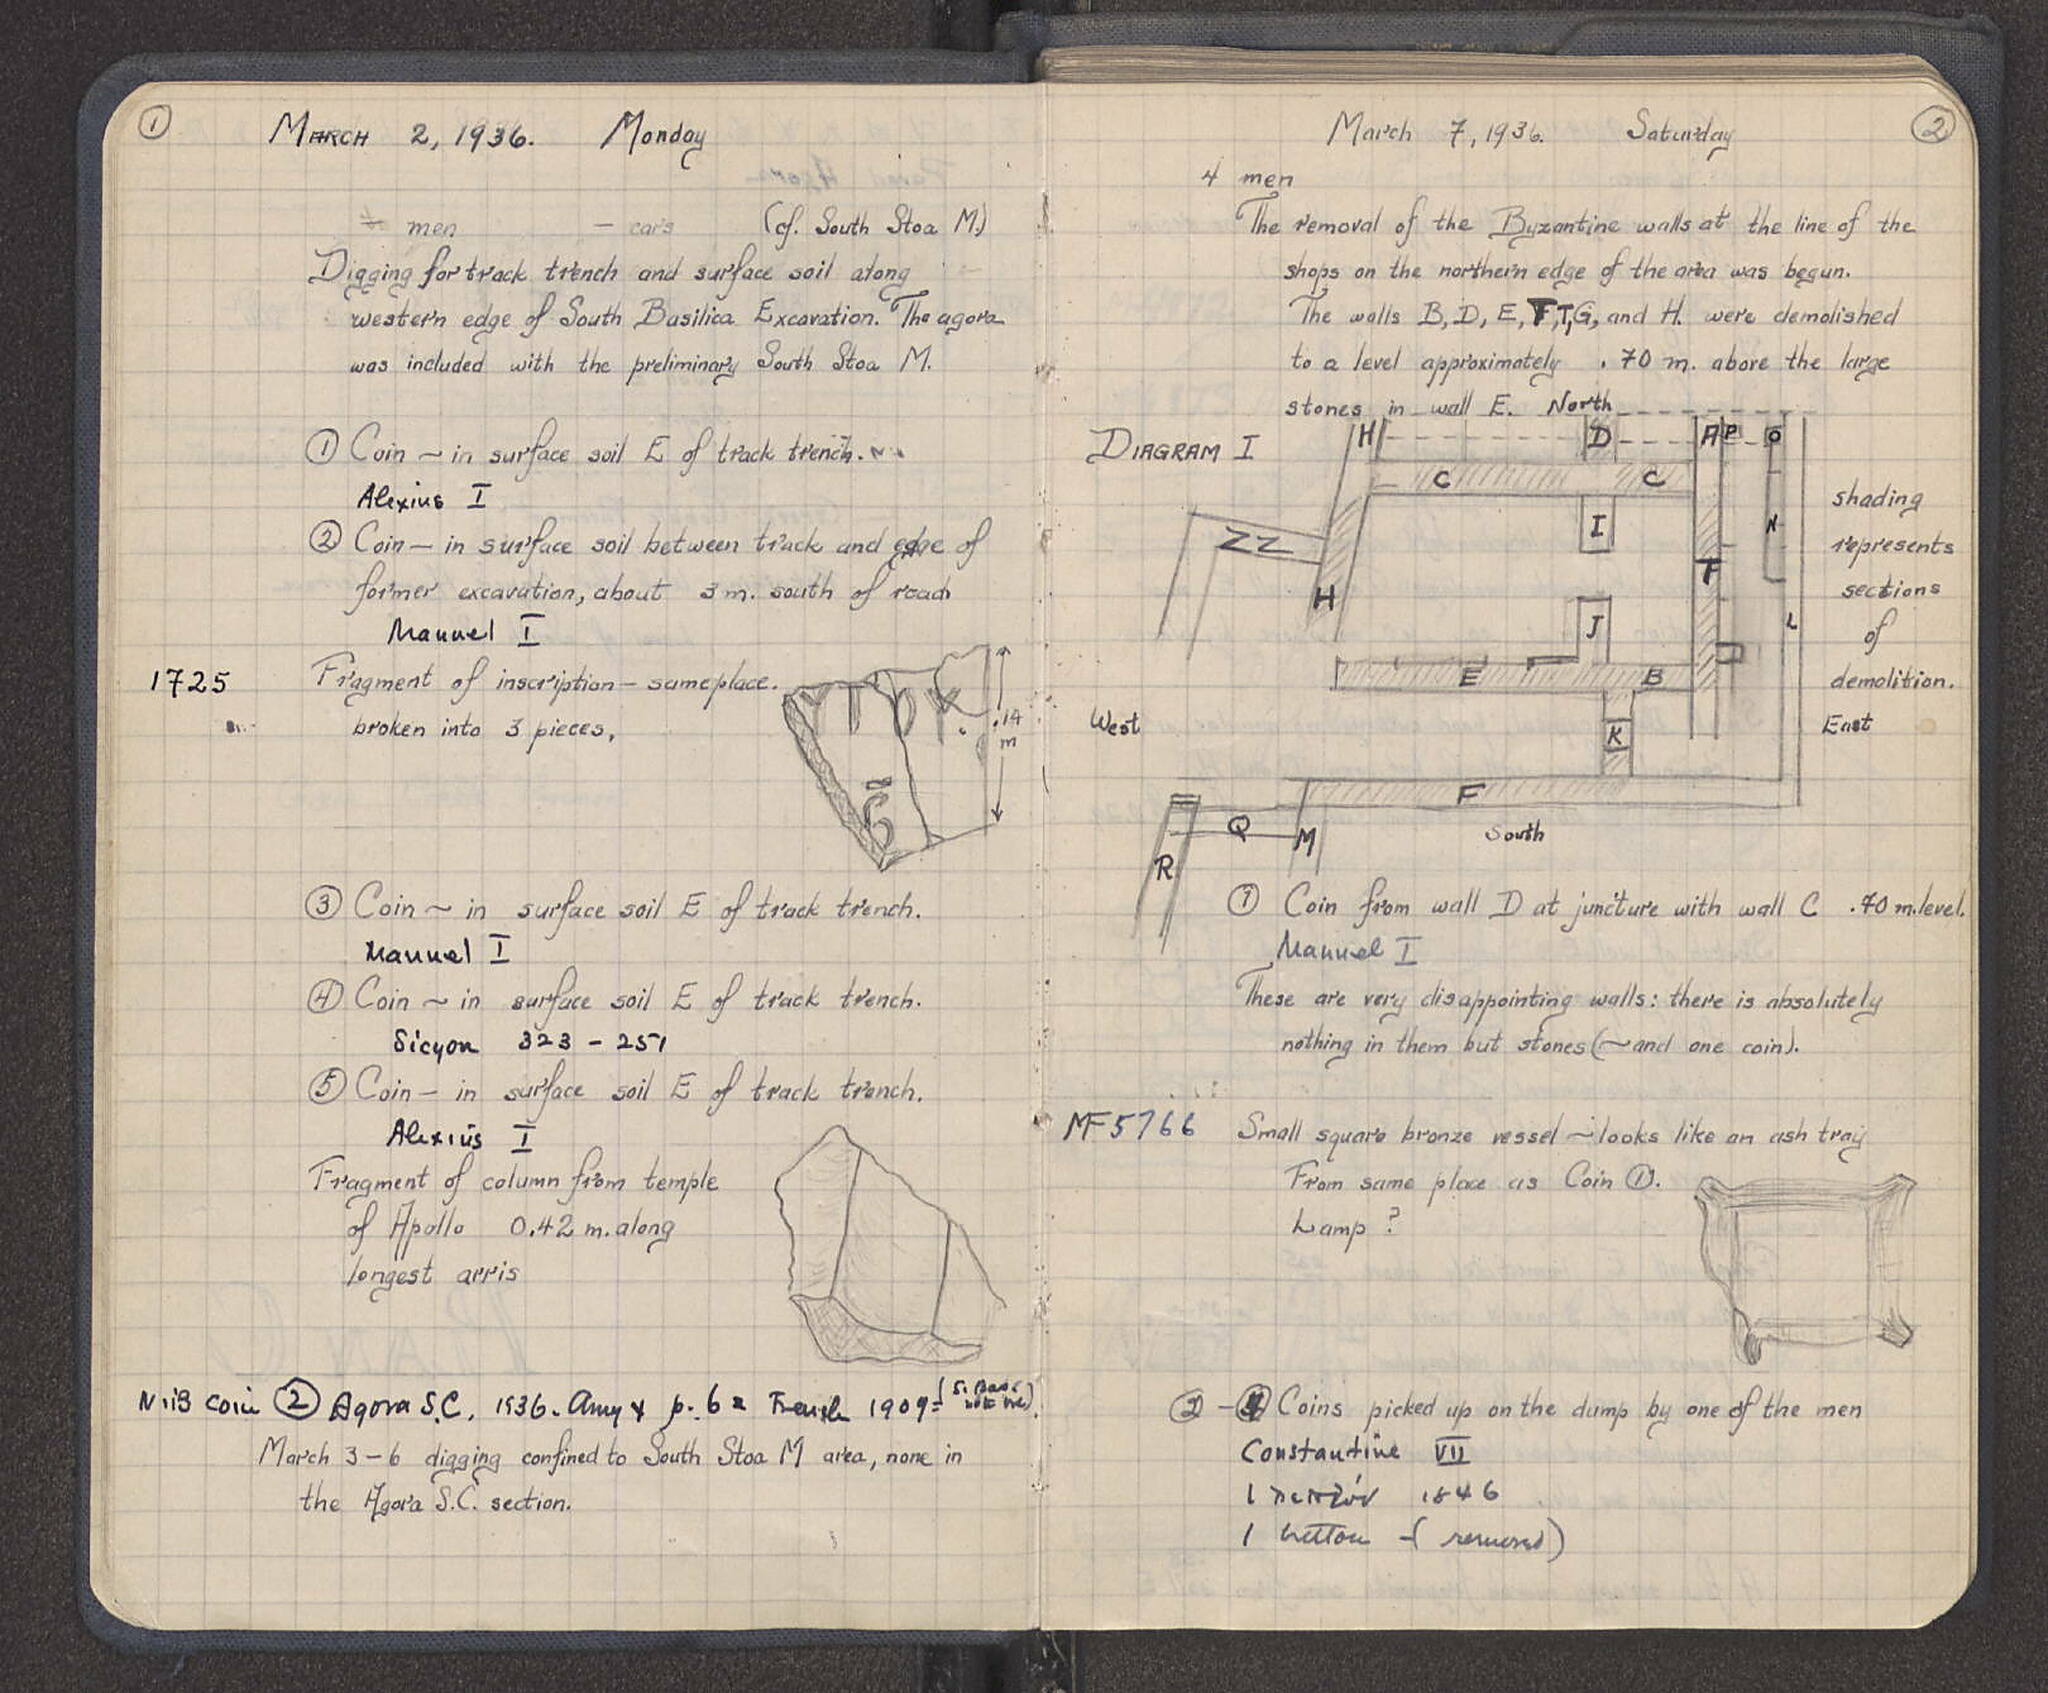 1
MARCH 2, 1936. Monday
men — cars (cf. South Stoa M.)
Digging for track trench and surface soil along
western edge of South Basilica Excavation. The agora
was included with the preliminary South Stoa M.
① Coin ~ in surface soil E of track trench.
Alexius I
② Coin — in surface soil between track and edge of
former excavation, about 3 m. south of road
Manuel I
1725 Fragment of inscription — same place.
broken into 3 pieces.
.14
m
③ Coin ~ in surface soil E of track trench.
Manuel I
④ Coin ~ in surface soil E of track trench.
Sicyon 323 - 251
⑤ Coin — in surface soil E of track trench.
Alexius I
Fragment of column from temple
of Apollo 0.42 m. along
longest arris
coin ② Agora S.C. 1936. p. 6 = French 1909
March 3-6 digging confined to South Stoa M area, none in
the Agora S.C. section.
March 7, 1936. Saturday 2
4 men
The removal of the Byzantine walls at the line of the
shops on the northern edge of the area was begun.
The walls B, D, E, F, T, G, and H. were demolished
to a level approximately .70 m. above the large
stones in wall E. North
DIAGRAM I
H D A P O
C C
I
N
ZZ
T
H
J
L
E B
K
West East
F
Q M
R
South
shading
represents
sections
of
demolition.
① Coin from wall D at juncture with wall C .70 m. level.
Manuel I
These are very disappointing walls: there is absolutely
nothing in them but stones (~ and one coin).
MF 5766 Small square bronze vessel — looks like an ash tray
From same place as Coin ①.
Lamp?
② - ④ Coins picked up on the dump by one of the men
Constantine VII
1 λεπτόν 1846
1 button - (removed)